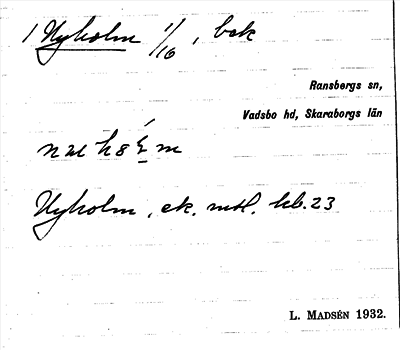 1 Nyholm 1/16, bok
Ransbergs sn,
Vadsbo hd, Skaraborgs län
Nyholm, ek. mtl. kb. 23
L. MADSÉN 1932.